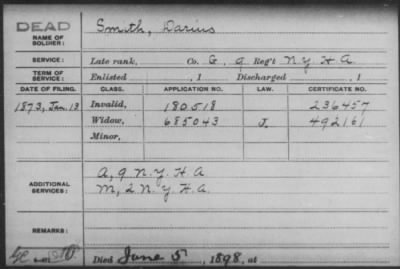 DEAD
NAME OF SOLDIER: Smith, Darius
SERVICE: Late rank, Co. G, 9 Reg't N.Y. H A.
TERM OF SERVICE: Enlisted , 1 Discharged , 1
DATE OF FILING. CLASS. APPLICATION NO. LAW. CERTIFICATE NO.
1873, Jan. 13 Invalid, 180518 236457
Widow, 685043 J. 492161
Minor,
ADDITIONAL SERVICES: A, 9 N.Y. H A
M, 2 N.Y. H.A.
REMARKS:
Died June 5, 1898, at